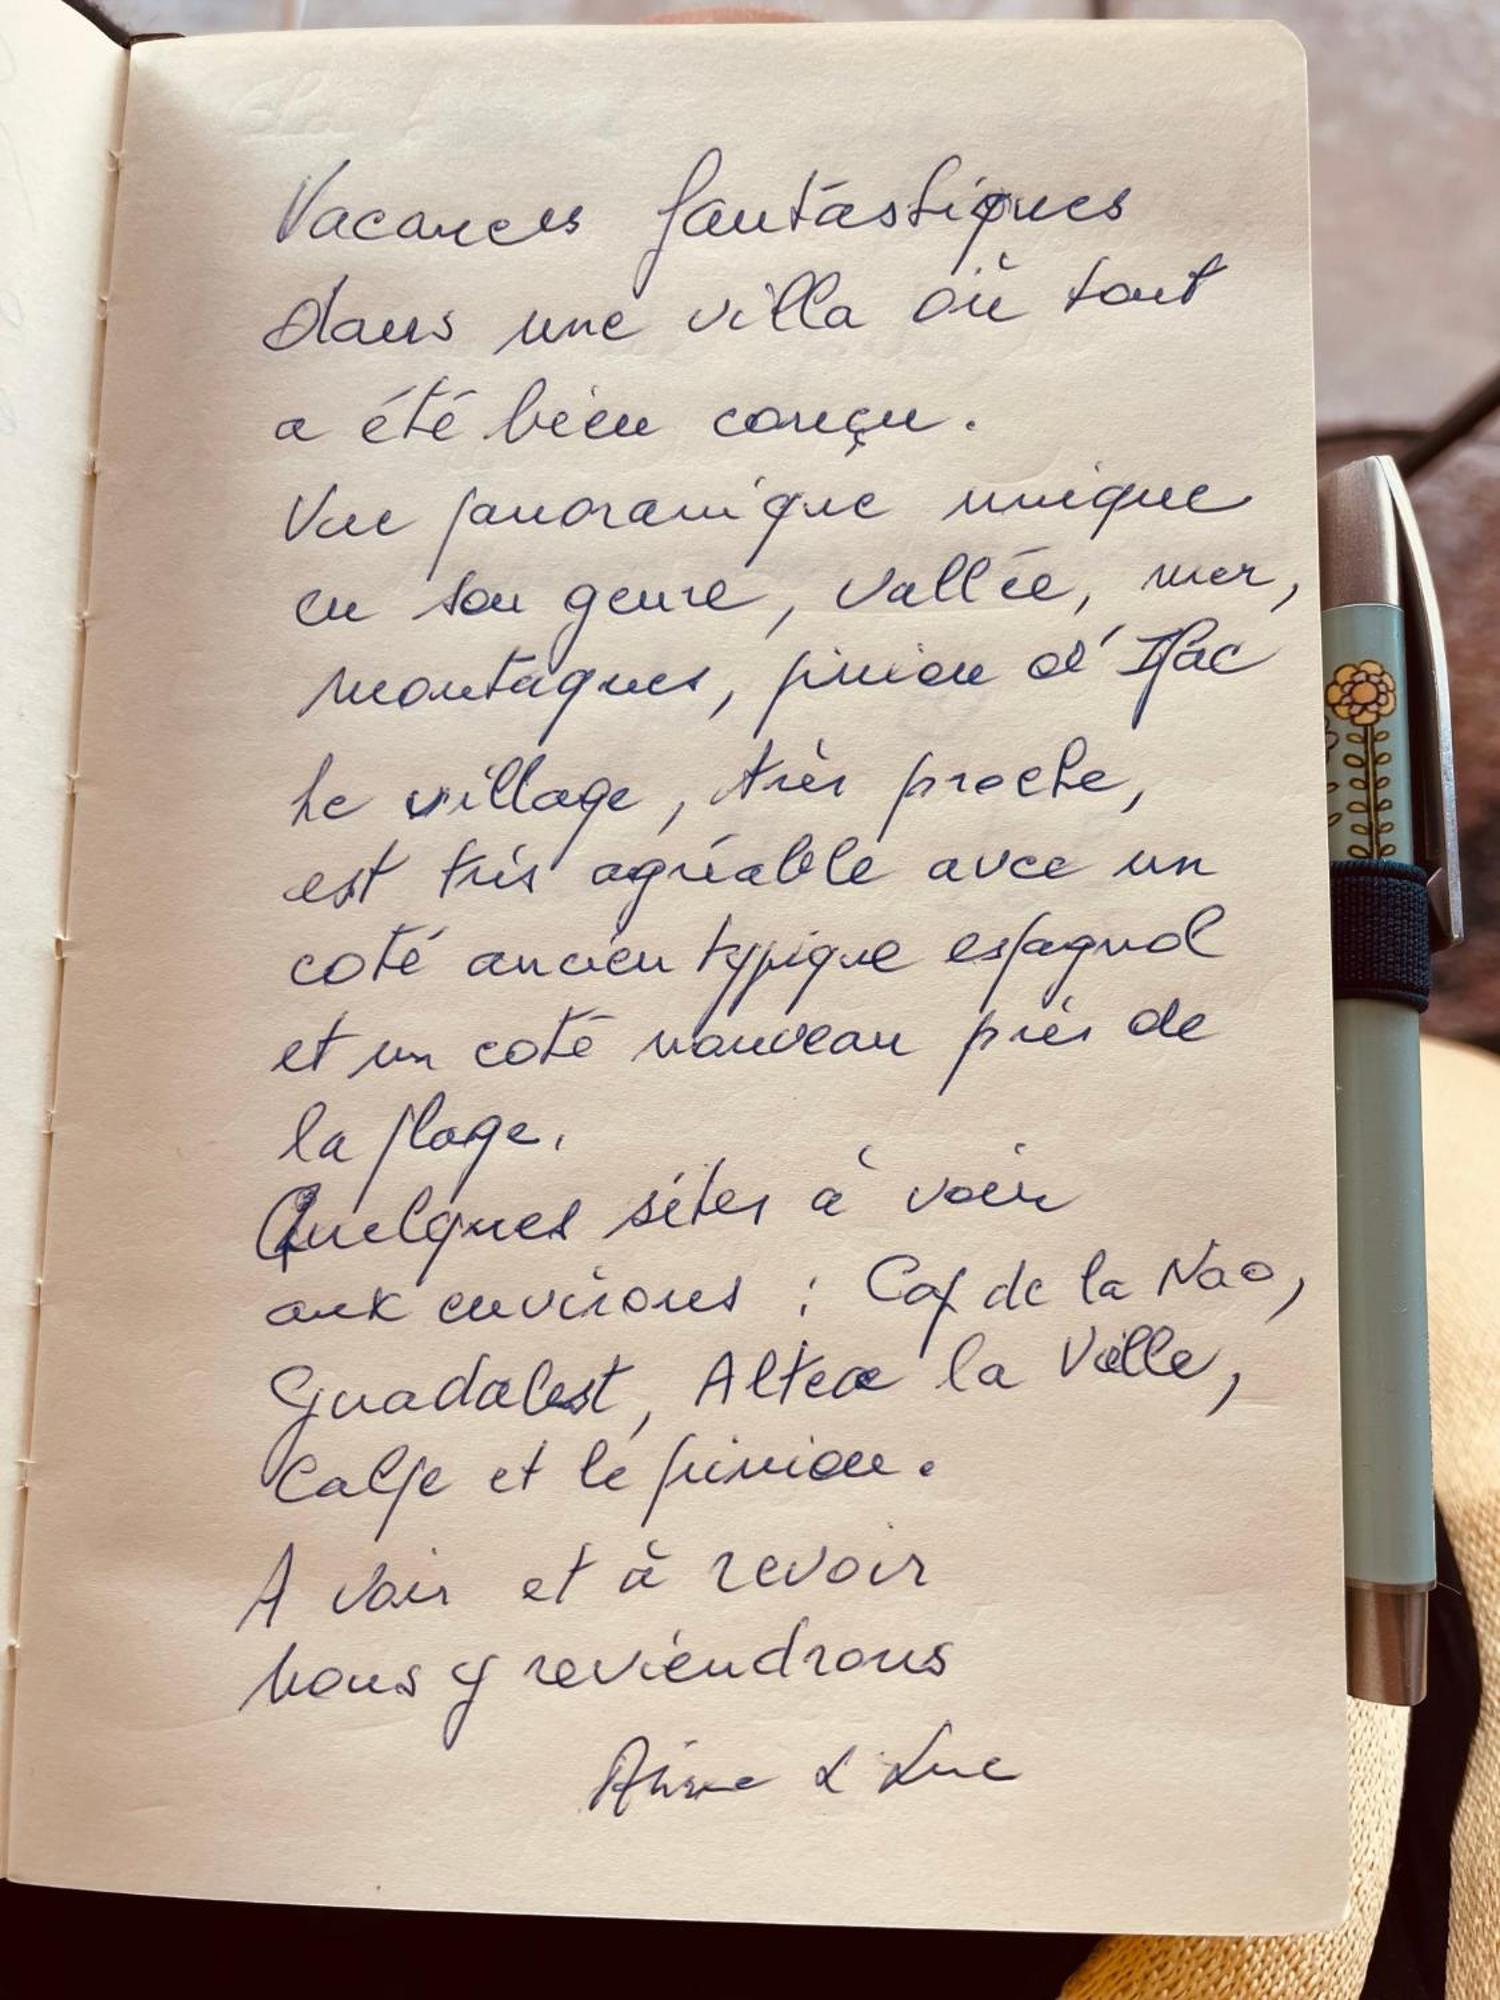 Vacances fantastiques
dans une villa où tout
a été bien conçu.
Vue panoramique unique
en son genre, vallée, mer,
montagnes, pinion d'Ifac
le village, très proche,
est très agréable avec un
coté ancien typique espagnol
et un coté nouveau près de
la plage.
Quelques sites à voir
aux environs : Cap de la Nao,
Guadalest, Altea la Vielle,
Calpe et le pinion.
A voir et à revoir
nous y reviendrons
& Luc